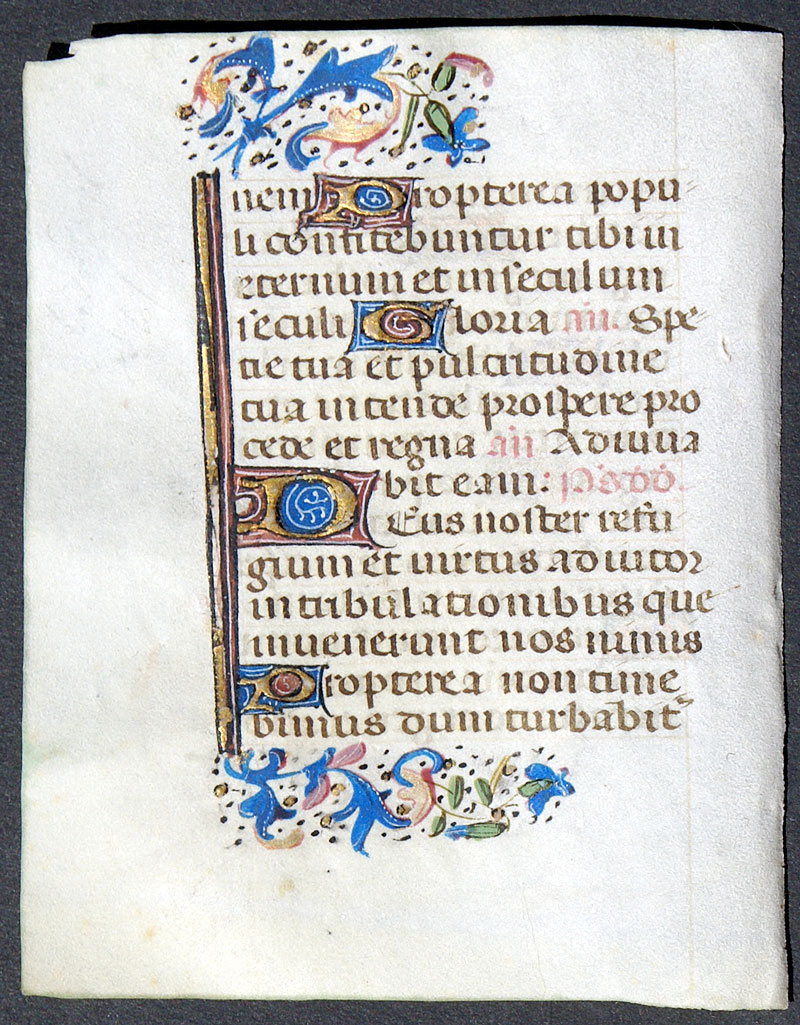 nem Propterea popu-
li confitebuntur tibi in
eternum et in seculum
seculi Gloria an. Spe-
tie tua et pulcritudine
tua intende prospere pro
cede et regna an Adiuua
bit eam: Ps dd.
Deus noster refu
gium et uirtus adiutor
in tribulationibus que
inuenerunt nos nimis
Propterea non time
bimus dum turbabit